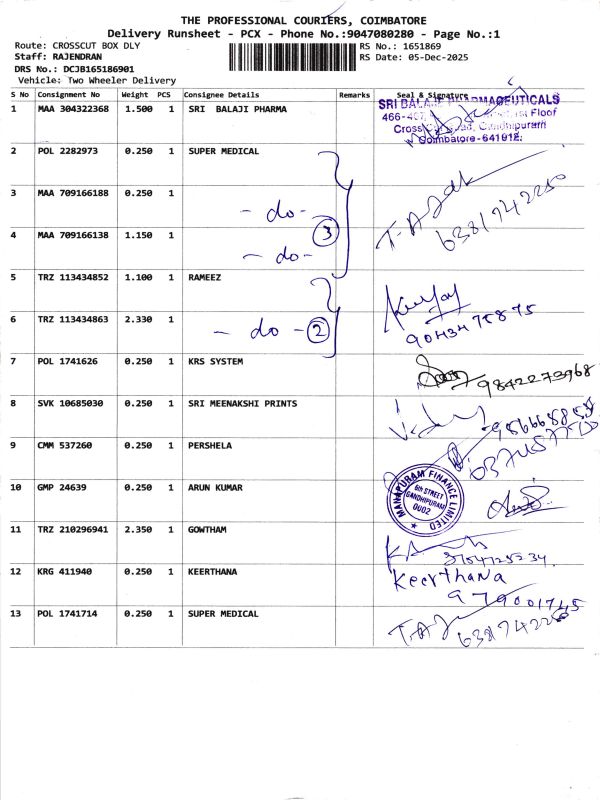 THE PROFESSIONAL COURIERS, COIMBATORE
Delivery Runsheet - PCX - Phone No.:9047080280 - Page No.:1
Route: CROSSCUT BOX DLY RS No.: 1651869
Staff: RAJENDRAN RS Date: 05-Dec-2025
DRS No.: DCJB165186901
Vehicle: Two Wheeler Delivery
S No Consignment No Weight PCS Consignee Details Remarks Seal & Signature
1 MAA 304322368 1.500 1 SRI BALAJI PHARMA
SRI BALAJI PHARMACEUTICALS
Floor
Gandhipuram
Coimbatore-641012.
2 POL 2282973 0.250 1 SUPER MEDICAL
3 MAA 709166188 0.250 1 - do - 3 6381742250
4 MAA 709166138 1.150 1 - do -
5 TRZ 113434852 1.100 1 RAMEEZ
6 TRZ 113434863 2.330 1 - do - 2 9043475875
7 POL 1741626 0.250 1 KRS SYSTEM 9842273968
8 SVK 10685030 0.250 1 SRI MEENAKSHI PRINTS
9 CMM 537260 0.250 1 PERSHELA
10 GMP 24639 0.250 1 ARUN KUMAR
MANAPURAM FINANCE LIMITED
6th STREET
GANDHIPURAM
0002
11 TRZ 210296941 2.350 1 GOWTHAM
12 KRG 411940 0.250 1 KEERTHANA Keerthana
13 POL 1741714 0.250 1 SUPER MEDICAL